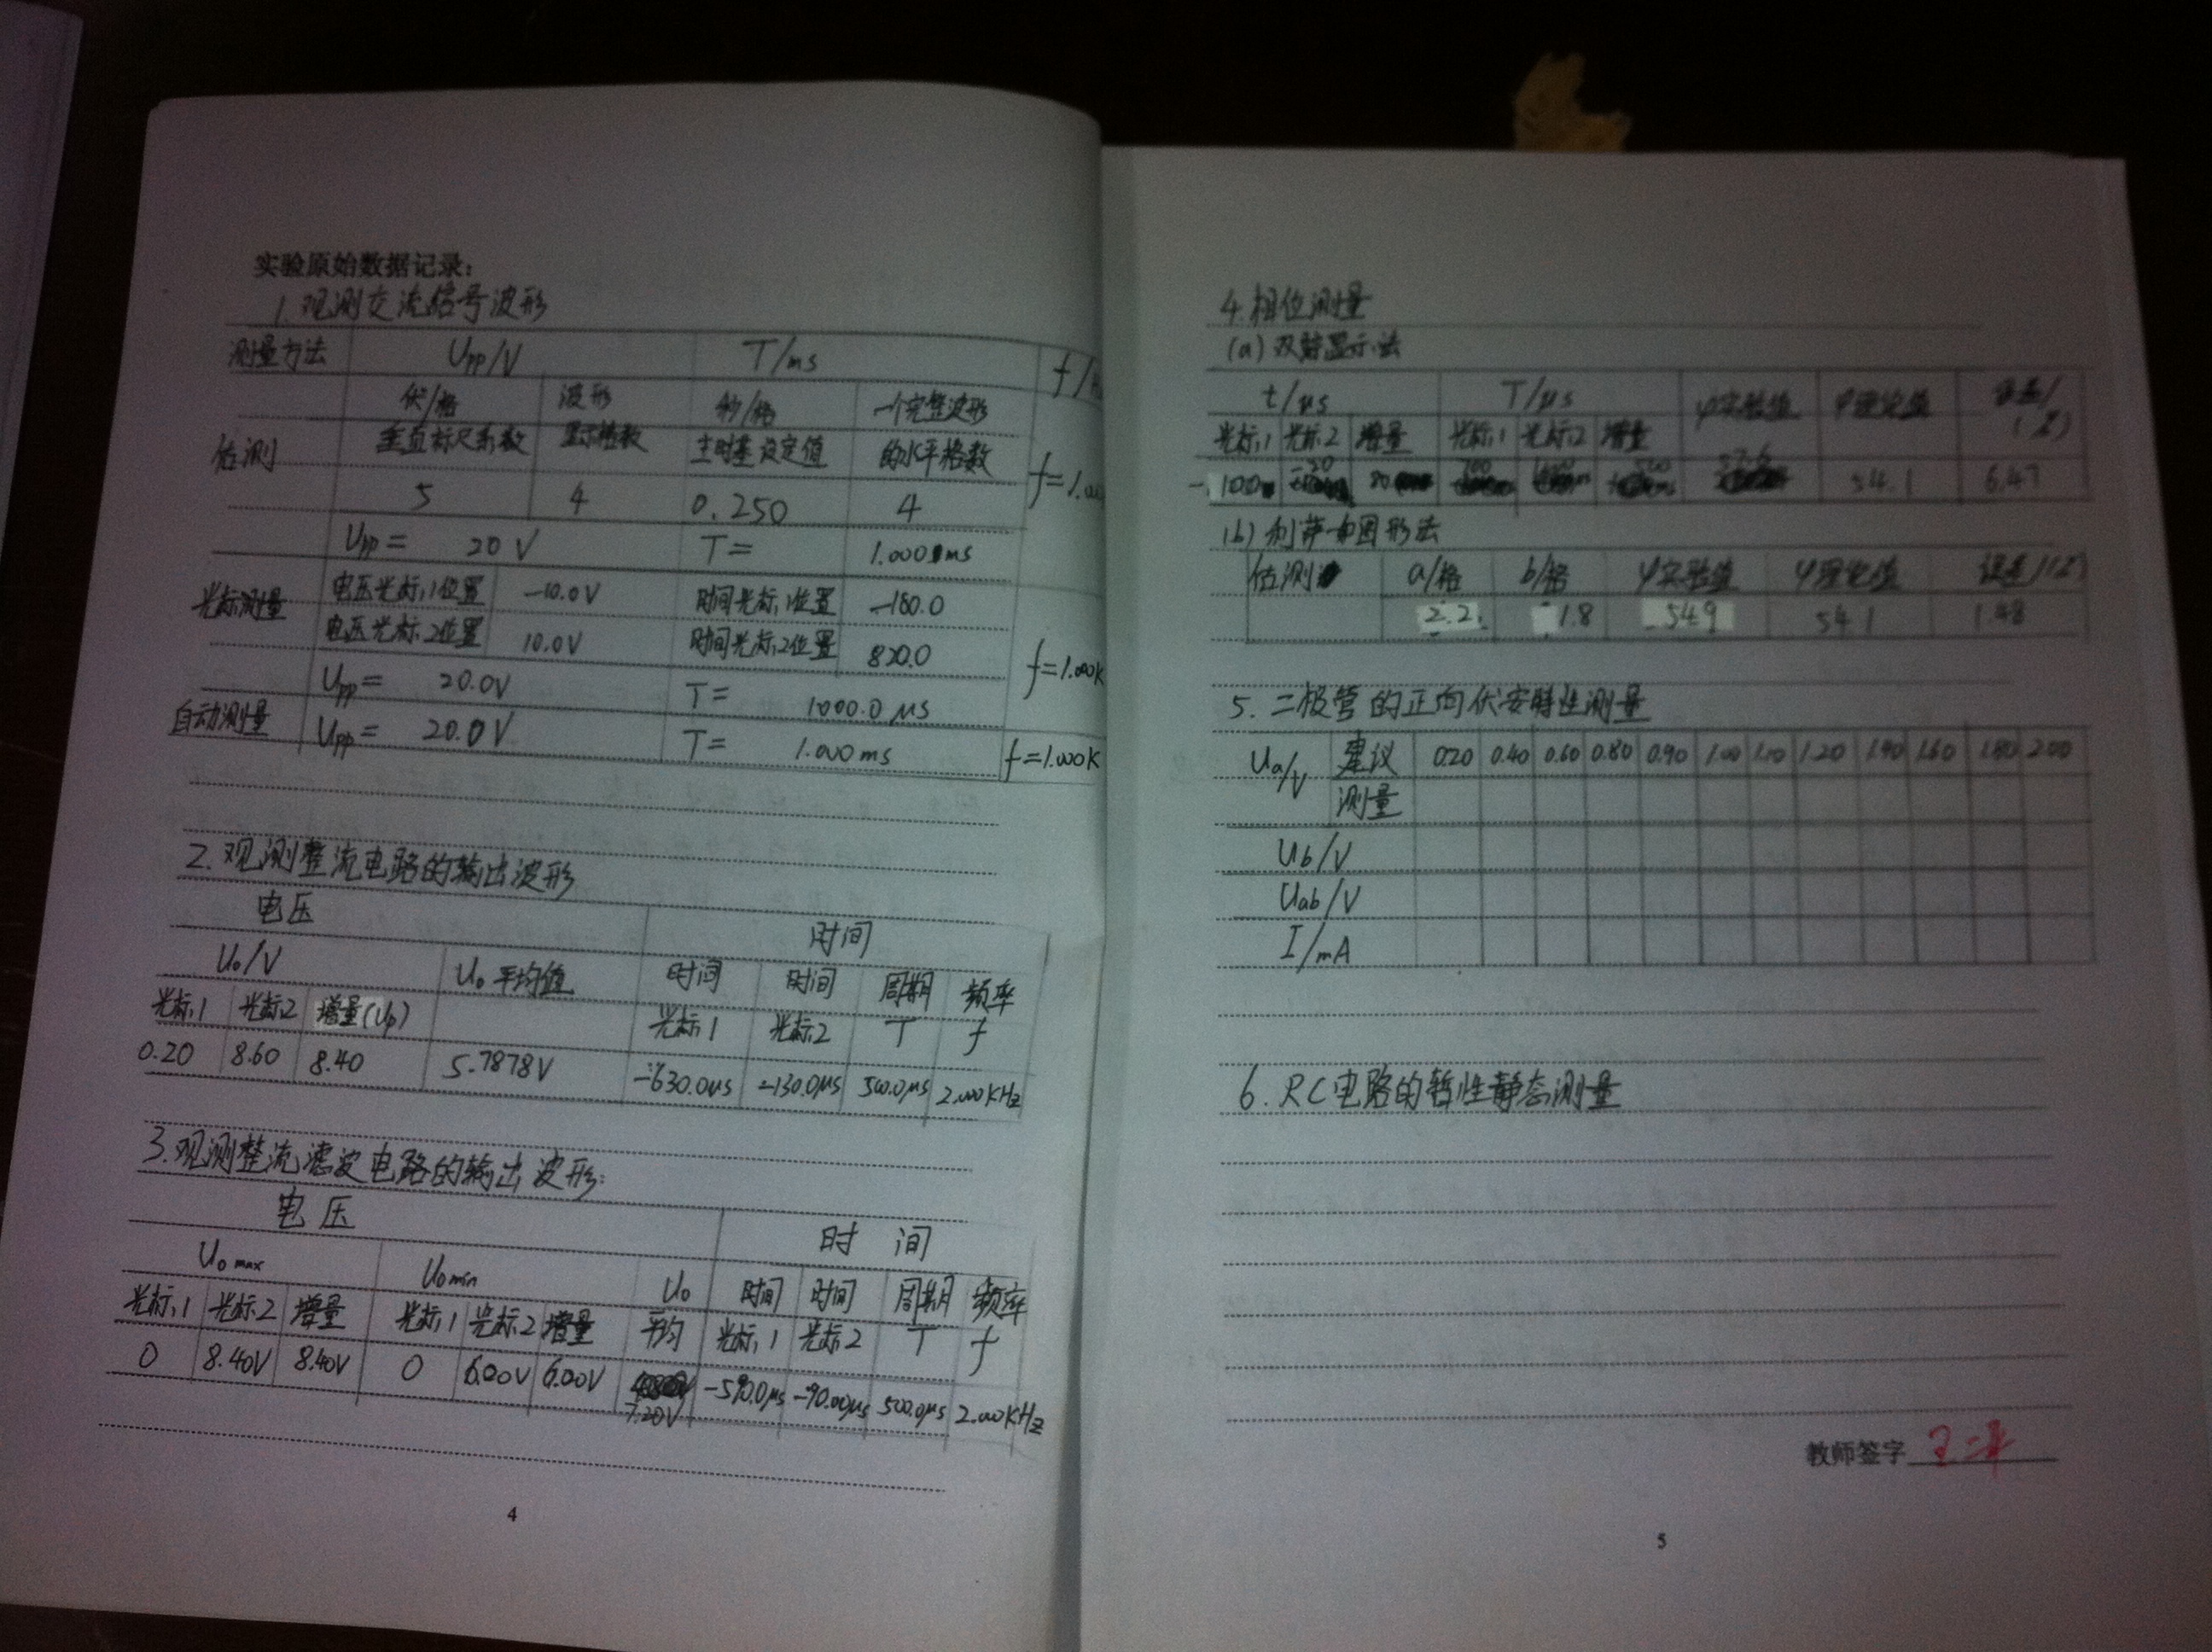 实验原始数据记录:
1.观测交流信号波形
测量方法 Upp/V T/ms f/
估测 伏/格 波形 秒/格 一个完整波形
垂直标尺系数 显示格数 主时基设定值 的水平格数
5 4 0.250 4 f=1.00
Upp= 20V T= 1.000ms
光标测量 电压光标1位置 -10.0V 时间光标1位置 -180.0
电压光标2位置 10.0V 时间光标2位置 820.0 f=1.00k
Upp= 20.0V T= 1000.0μs
自动测量 Upp= 20.0V T= 1.000ms f=1.000k
2.观测整流电路的输出波形
电压 时间
Uo/V Uo平均值 时间 时间 周期 频率
光标1 光标2 增量(Up) 光标1 光标2 T f
0.20 8.60 8.40 5.7878V -630.0μs -130.0μs 500.0μs 2.000kHz
3.观测整流滤波电路的输出波形:
电压 时间
Uomax Uomin Uo 时间 时间 周期 频率
光标1 光标2 增量 光标1 光标2 增量 平均 光标1 光标2 T f
0 8.40V 8.40V 0 6.00V 6.00V 7.20V -590.0μs -90.0μs 500.0μs 2.000kHz
4
4.相位测量
(a)双踪显示法
t/μs T/μs φ实验值 φ理论值 误差/(%)
光标1 光标2 增量 光标1 光标2 增量
-100 54.1 6.47
(b)利萨如图形法
估测 a/格 b/格 φ实验值 φ理论值 误差/(%)
2.2 1.8 54.9 54.1 1.48
5.二极管的正向伏安特性测量
Ua/V 建议 0.20 0.40 0.60 0.80 0.90 1.00 1.10 1.20 1.40 1.60 1.80 2.00
测量
Ub/V
Uab/V
I/mA
6.RC电路的暂性静态测量
教师签字
5